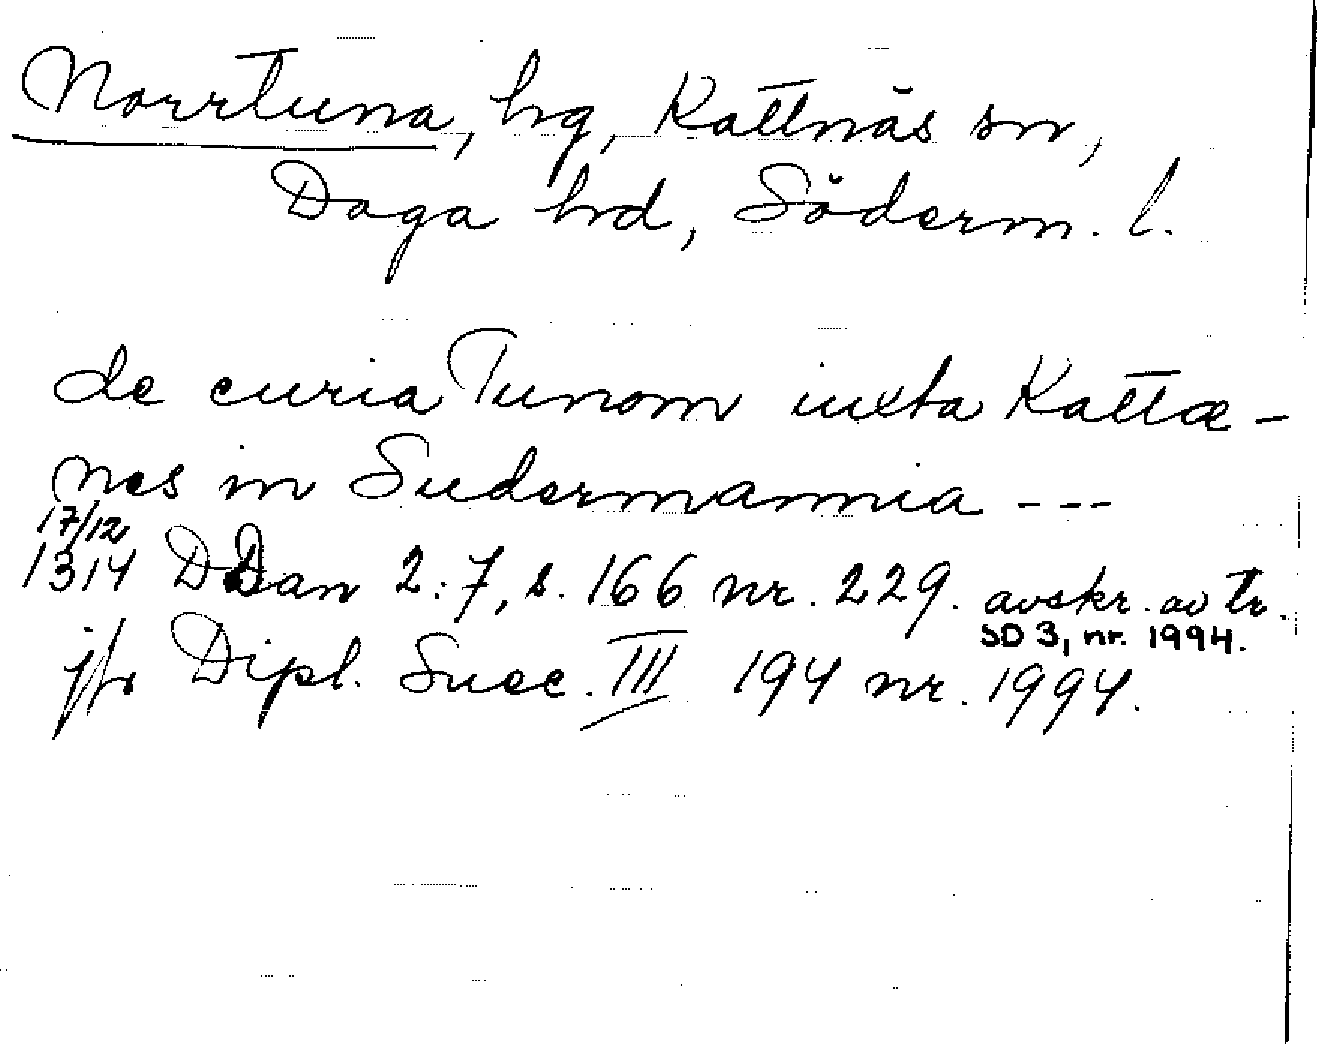 Norrtuna, hg, Kattnäs sn,
Daga hd, Söderm. l.
de curia Tunom iuxta Kattæ-
nes in Sudermannia ---
17/12
1314 DDan 2:7, s. 166 nr. 229. avskr. av tr.
SD 3, nr. 1994.
jfr Dipl. Suec. III 194 nr. 1994.